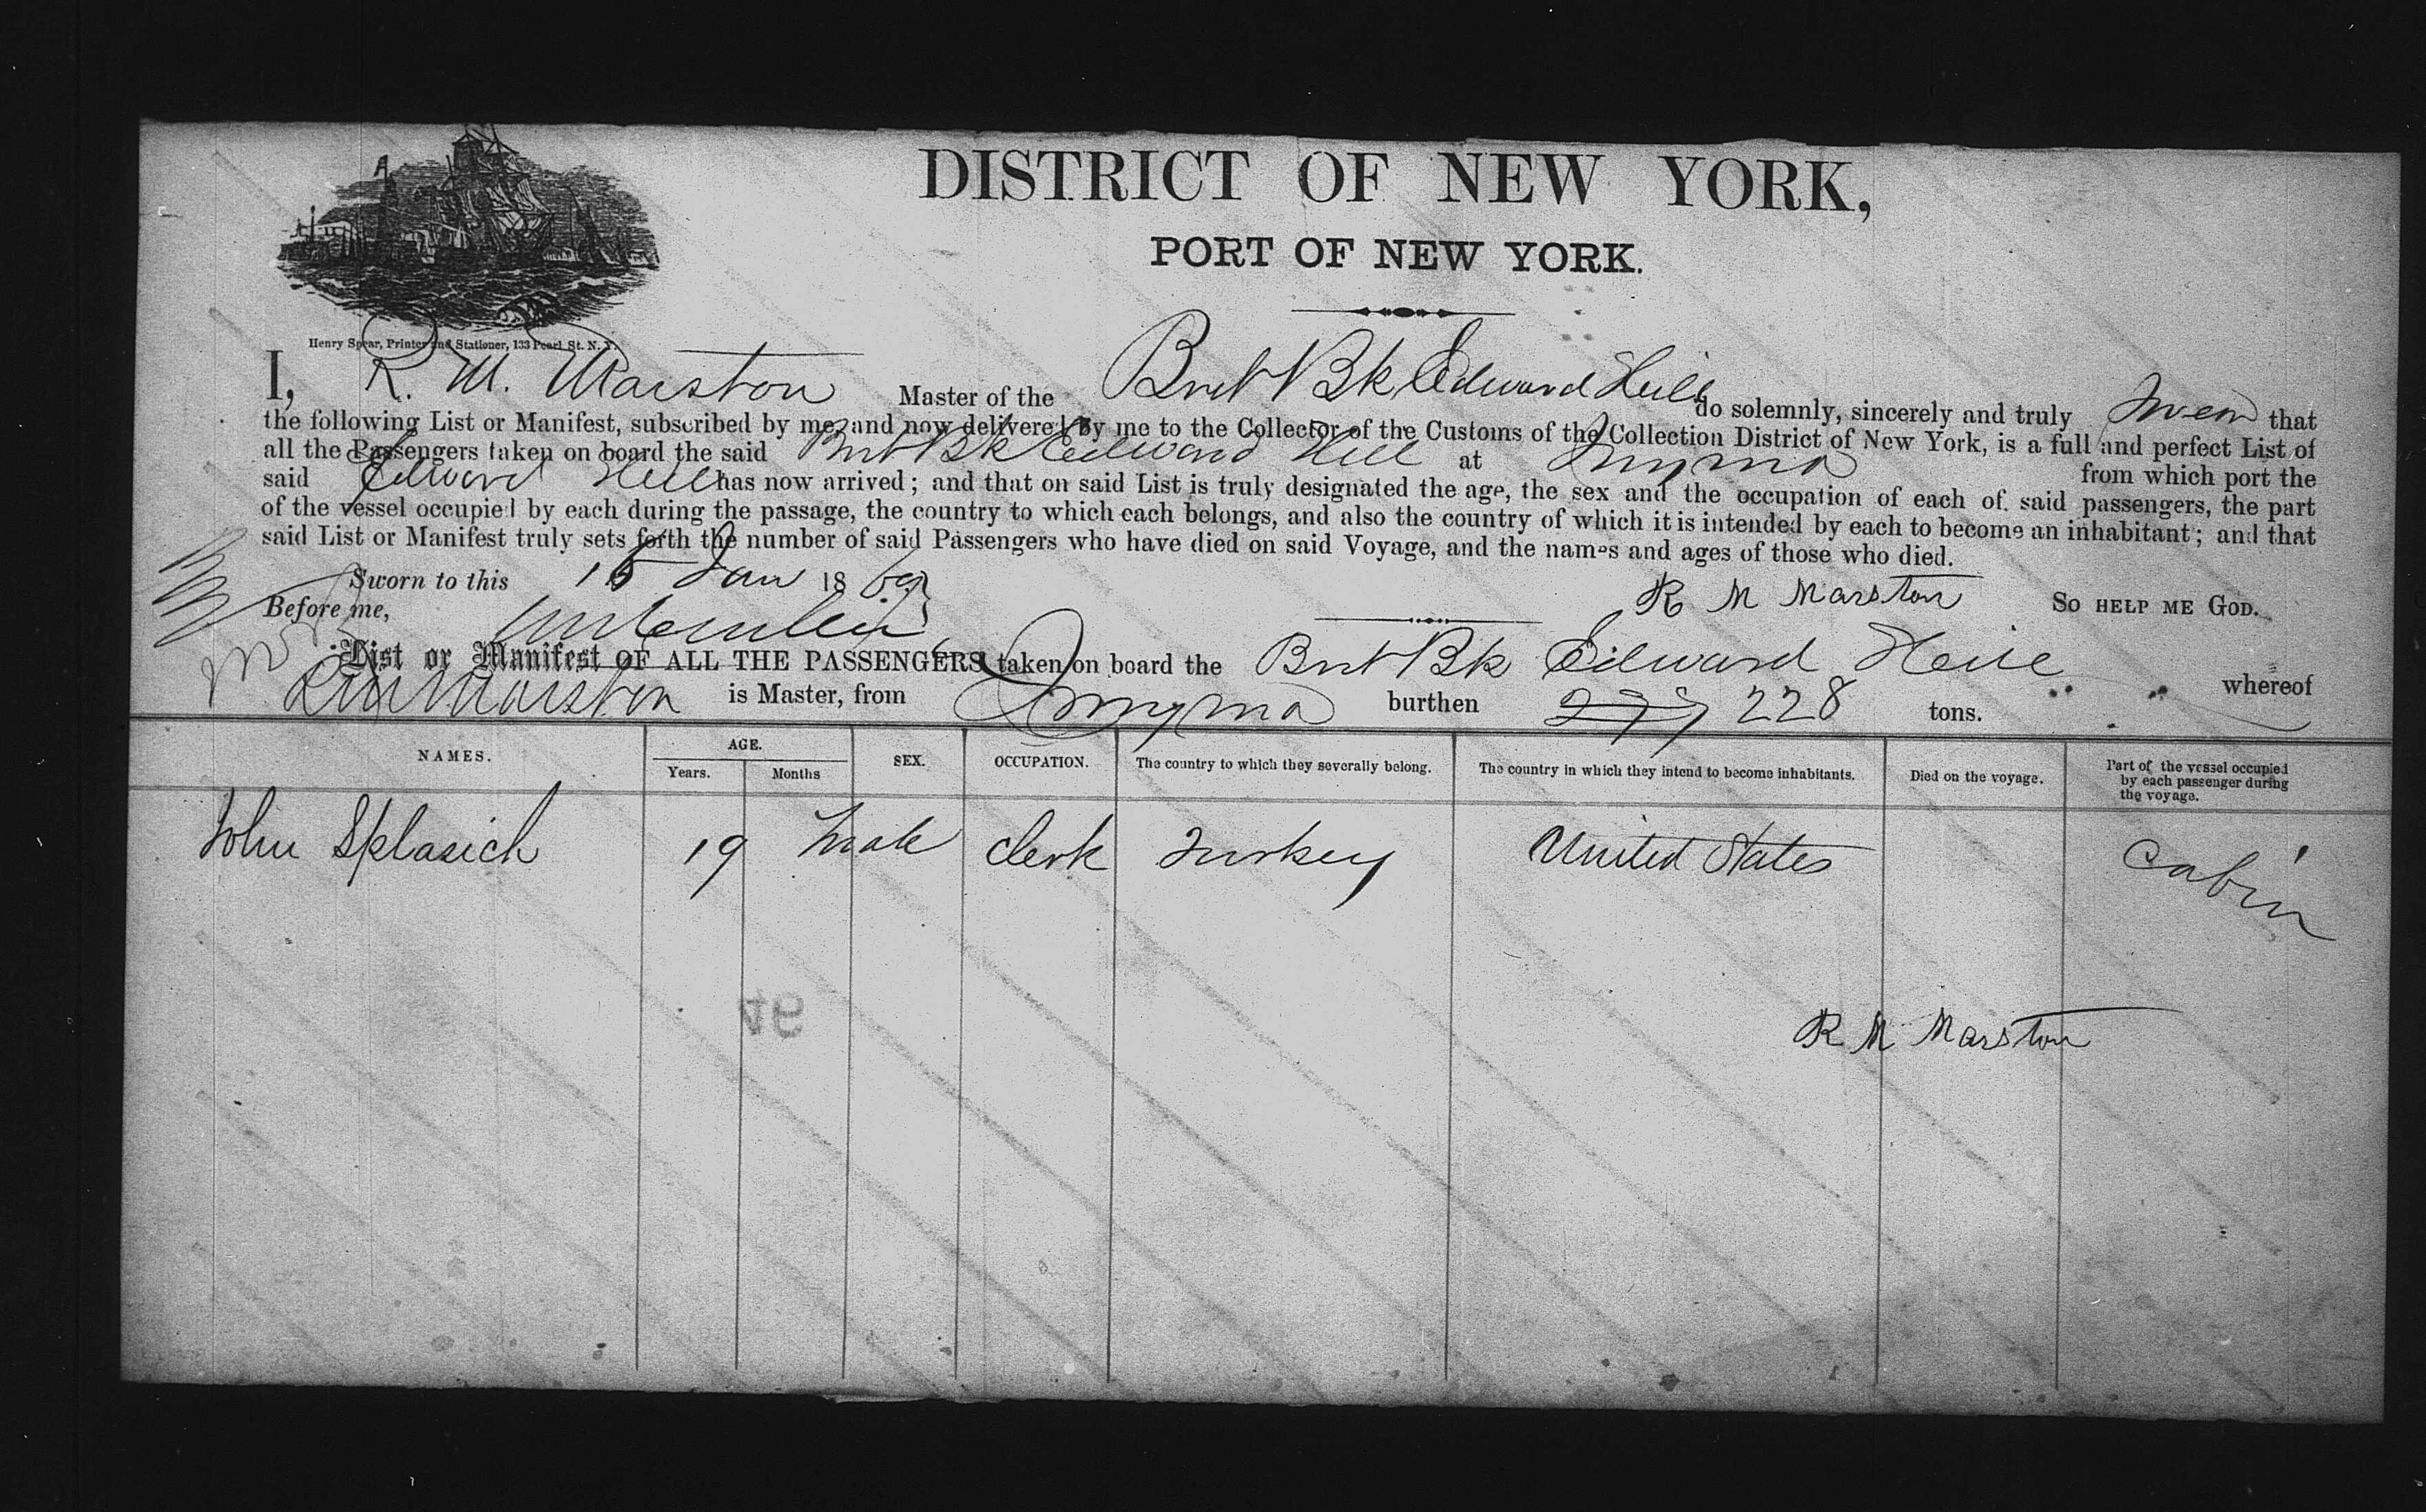 DISTRICT OF NEW YORK,
PORT OF NEW YORK.
Henry Spear, Printer and Stationer, 133 Pearl St. N. Y.
I, R. M. Marston Master of the Brit Bk Edward Hill do solemnly, sincerely and truly swear that
the following List or Manifest, subscribed by me, and now delivered by me to the Collector of the Customs of the Collection District of New York, is a full and perfect List of
all the Passengers taken on board the said Brit Bk Edward Hill at Smyrna from which port the
said Edward Hill has now arrived; and that on said List is truly designated the age, the sex and the occupation of each of said passengers, the part
of the vessel occupied by each during the passage, the country to which each belongs, and also the country of which it is intended by each to become an inhabitant; and that
said List or Manifest truly sets forth the number of said Passengers who have died on said Voyage, and the names and ages of those who died.
Sworn to this 15 Jan 1869
Before me,
R M Marston SO HELP ME GOD.
List or Manifest OF ALL THE PASSENGERS taken on board the Brit Bk Edward Hill whereof
R M Marston is Master, from Smyrna burthen 228 tons.
NAMES. AGE. Years. Months SEX. OCCUPATION. The country to which they severally belong. The country in which they intend to become inhabitants. Died on the voyage. Part of the vessel occupied by each passenger during the voyage.
John Sklasich 19 Male Clerk Turkey United States Cabin
46
R M Marston